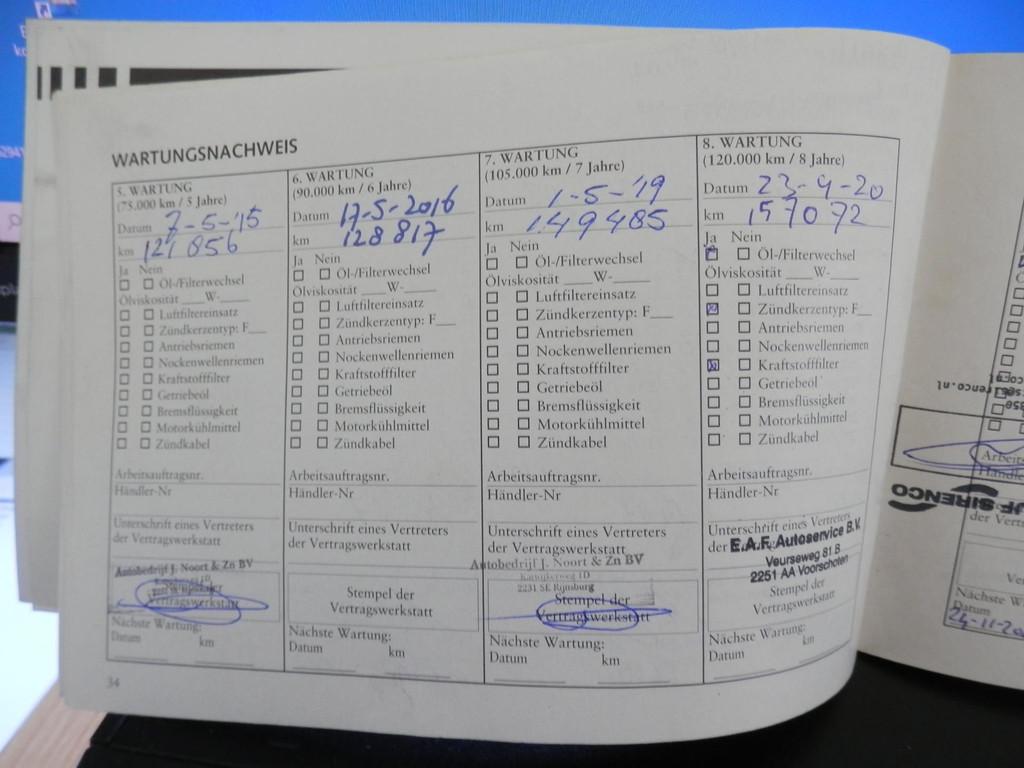 WARTUNGSNACHWEIS
5. WARTUNG
(75.000 km / 5 Jahre)
Datum 7-5-'15
km 121 856
Ja Nein
Öl-/Filterwechsel
Ölviskosität ___W-___
Luftfiltereinsatz
Zündkerzentyp: F__
Antriebsriemen
Nockenwellenriemen
Kraftstofffilter
Getriebeöl
Bremsflüssigkeit
Motorkühlmittel
Zündkabel
Arbeitsauftragsnr.
Händler-Nr
Unterschrift eines Vertreters
der Vertragswerkstatt
Autobedrijf J. Noort & Zn BV
Vertragswerkstatt
Nächste Wartung:
Datum km
6. WARTUNG
(90.000 km / 6 Jahre)
Datum 17-5-2016
km 128 817
Ja Nein
Öl-/Filterwechsel
Ölviskosität ___W-___
Luftfiltereinsatz
Zündkerzentyp: F__
Antriebsriemen
Nockenwellenriemen
Kraftstofffilter
Getriebeöl
Bremsflüssigkeit
Motorkühlmittel
Zündkabel
Arbeitsauftragsnr.
Händler-Nr
Unterschrift eines Vertreters
der Vertragswerkstatt
Stempel der
Vertragswerkstatt
Nächste Wartung:
Datum km
7. WARTUNG
(105.000 km / 7 Jahre)
Datum 1-5-'19
km 149485
Ja Nein
Öl-/Filterwechsel
Ölviskosität ___W-___
Luftfiltereinsatz
Zündkerzentyp: F__
Antriebsriemen
Nockenwellenriemen
Kraftstofffilter
Getriebeöl
Bremsflüssigkeit
Motorkühlmittel
Zündkabel
Arbeitsauftragsnr.
Händler-Nr
Unterschrift eines Vertreters
der Vertragswerkstatt
Autobedrijf J. Noort & Zn BV
2231 SE Rijnsburg
Stempel der
Vertragswerkstatt
Nächste Wartung:
Datum km
8. WARTUNG
(120.000 km / 8 Jahre)
Datum 23-4-20
km 157072
Ja Nein
Öl-/Filterwechsel
Ölviskosität ___W-___
Luftfiltereinsatz
Zündkerzentyp: F__
Antriebsriemen
Nockenwellenriemen
Kraftstofffilter
Getriebeöl
Bremsflüssigkeit
Motorkühlmittel
Zündkabel
Arbeitsauftragsnr.
Händler-Nr
Unterschrift eines Vertreters
der
E.A.F. Autoservice B.V.
Veurseweg 81 B
2251 AA Voorschoten
Stempel der
Vertragswerkstatt
Nächste Wartung:
Datum km
34
SIRENCO
Datum
24-11-20